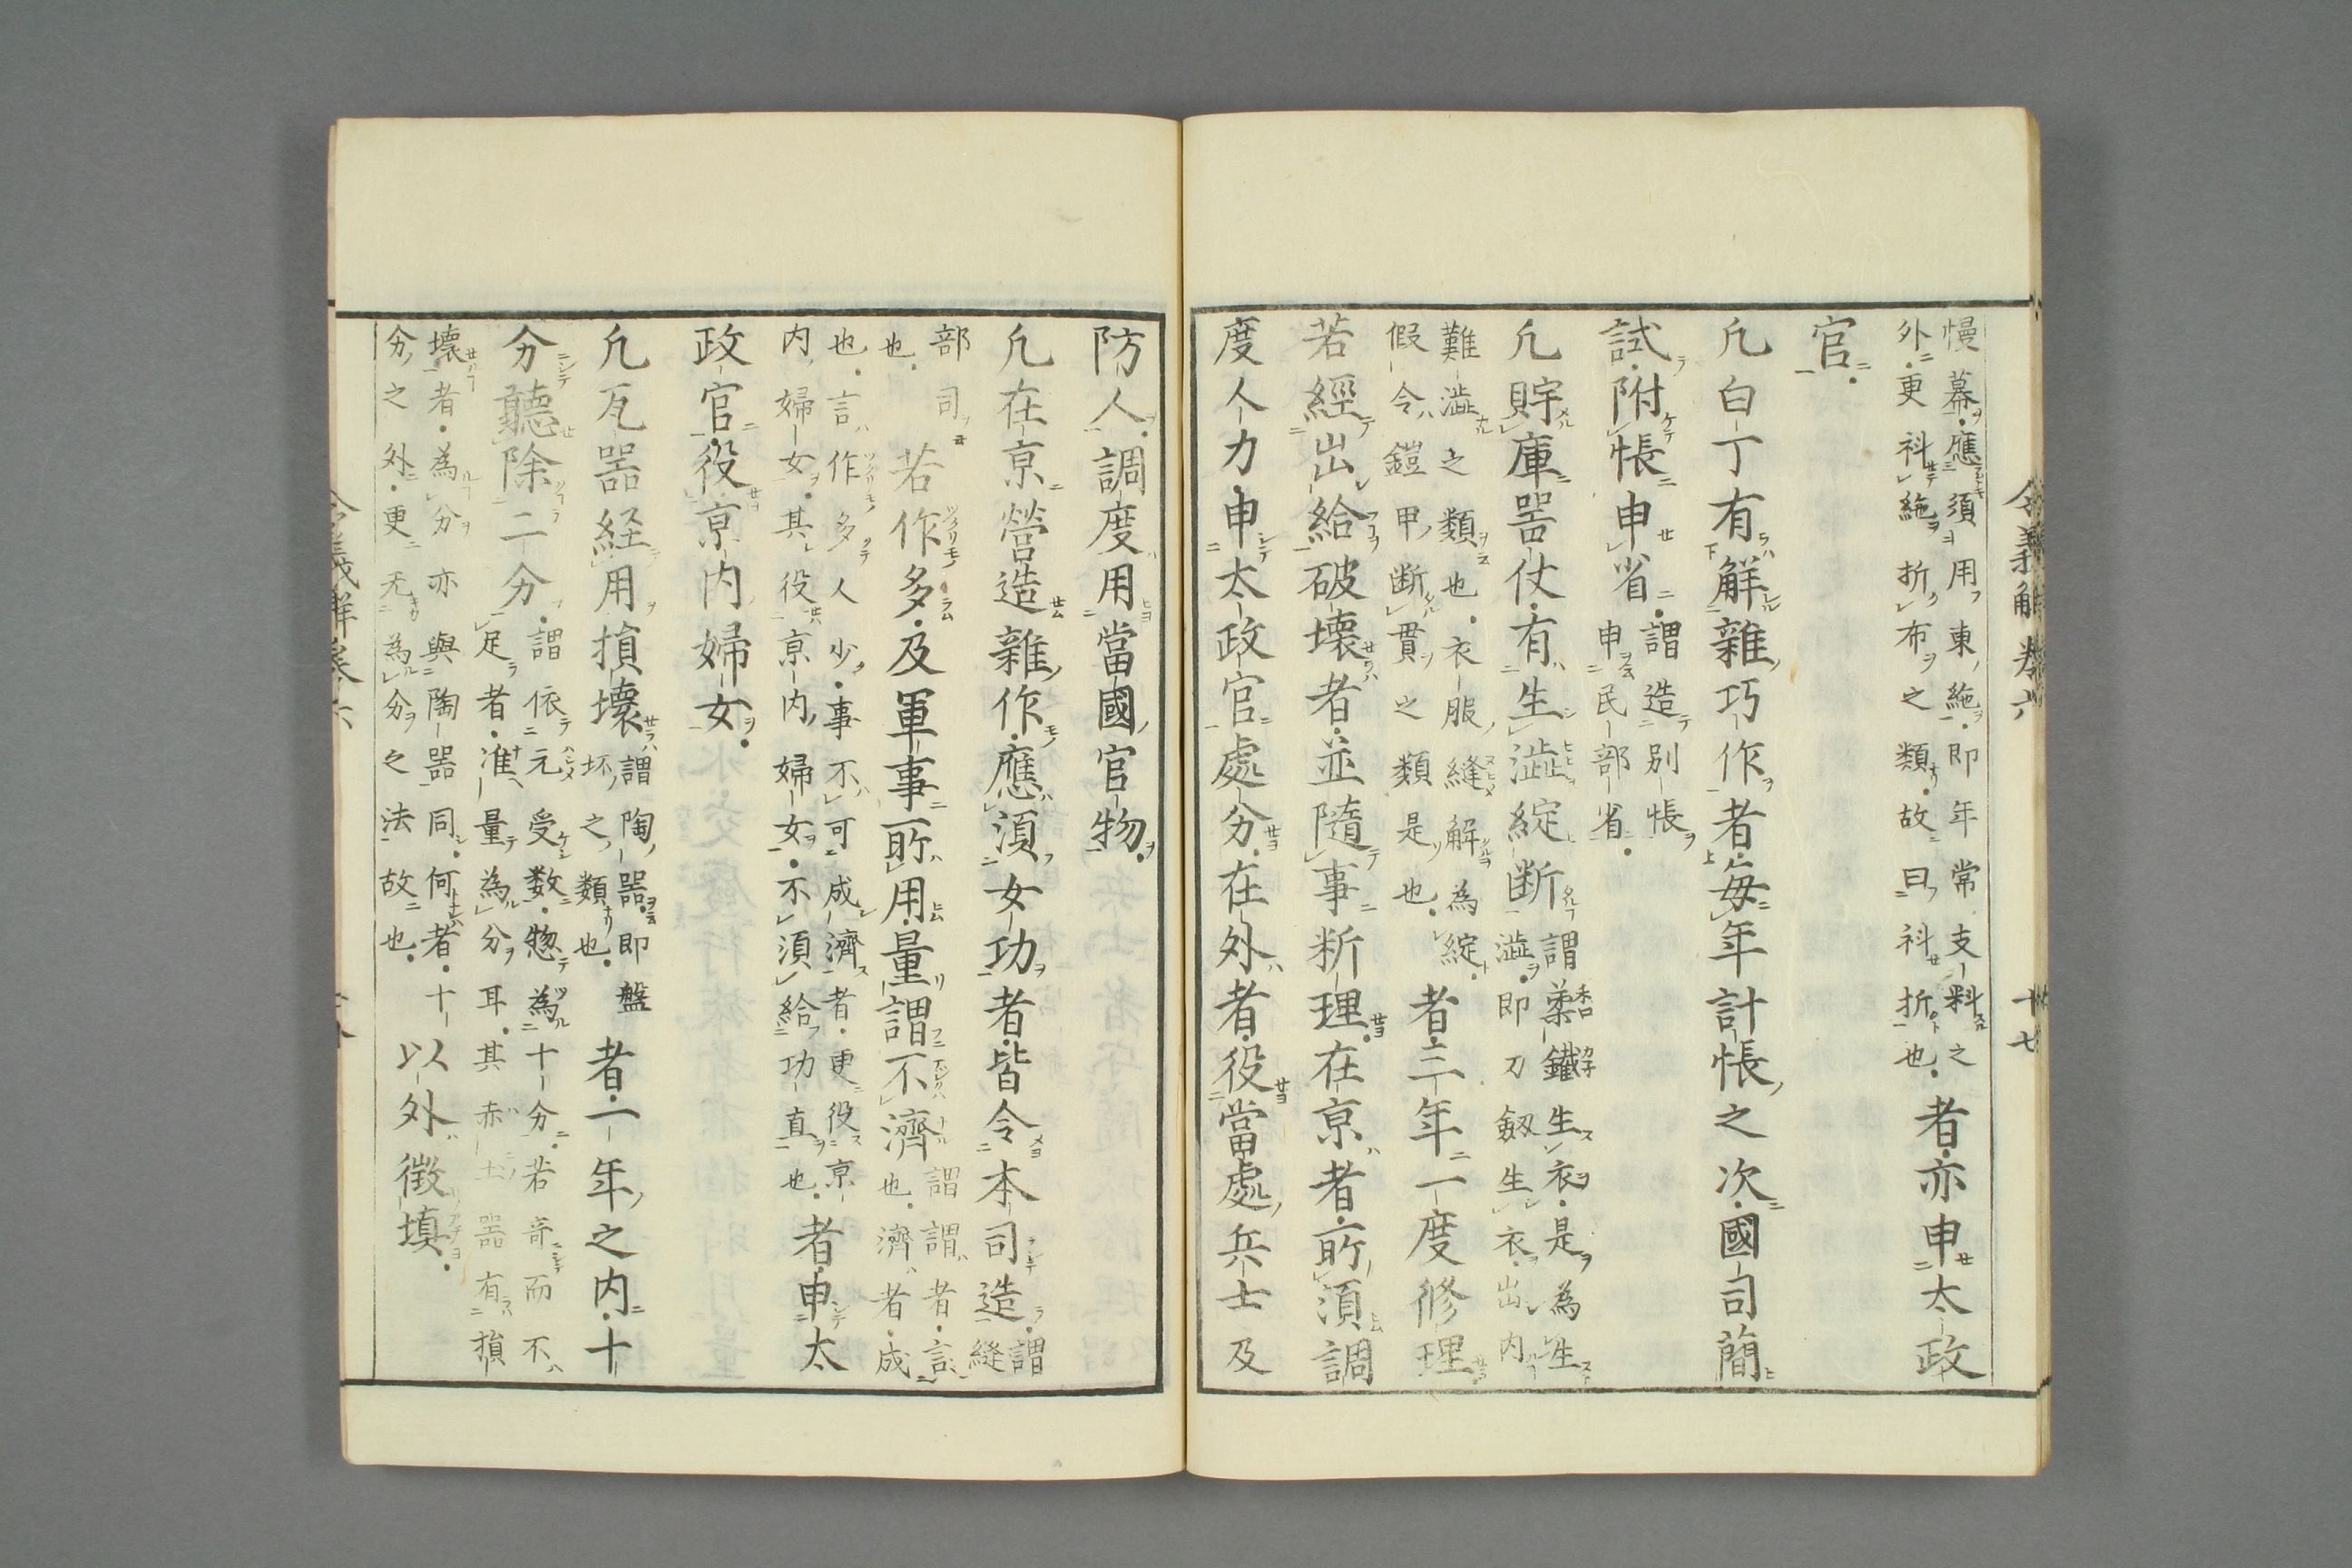 幔幕應須用東絁即年常支料之
外更科絁折布之類故曰科折也
者亦申太政
官
凡白丁有解雜巧作者毎年計帳之次國司簡
試附帳申省
謂造別帳
申民部省
凡貯庫噐仗有生澁綻断
謂藁鐵生衣是為生
澁即刀釼生衣出内
難澁之類也衣服縫解為綻
假令鎧甲断貫之類是也
者三年一度修理
若經出給破壊者並隨事断理在京者所須調
度人力申太政官處分在外者役當處兵士及
令義解巻六 十七
防人調度用當國官物
凡在京營造雜作應須女功者皆令本司造
謂縫
部司
若作多及軍事所用量謂不濟
謂謂者言
也濟者成
也言作多人少事不可成濟者更役京
内婦女其役京内婦女不須給功直也
者申太
政官役京内婦女
凡瓦噐経用損壊
謂陶噐即盤
坏之類也
者一年之内十
分聽除二分
謂依元受数惣為十分若奇而不
足者准量為分耳其赤土噐有損
壊者為分亦與陶噐同何者十
分之外更无為分之法故也
以外徴填